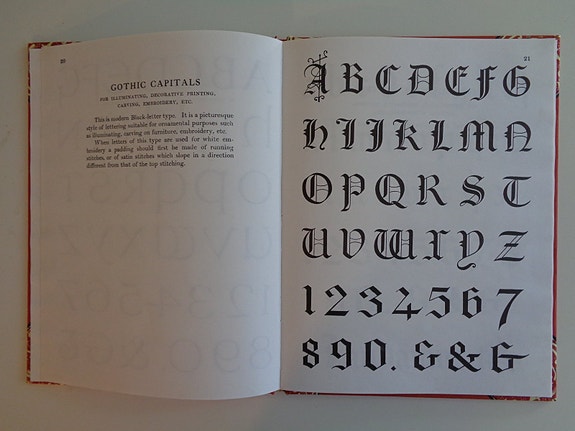 20
GOTHIC CAPITALS
FOR ILLUMINATING, DECORATIVE PRINTING,
CARVING, EMBROIDERY, ETC.
This is modern Black-letter type. It is a picturesque
style of lettering suitable for ornamental purposes such
as illuminating, carving on furniture, embroidery, etc.
When letters of this type are used for white em-
broidery a padding should first be made of running
stitches, or of satin stitches which slope in a direction
different from that of the top stitching.
21
A B C D E F G
H I J K L M N
O P Q R S T
U V W X Y Z
1 2 3 4 5 6 7
8 9 0 . & & &